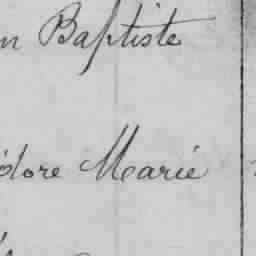 n Baptiste
dore Marie